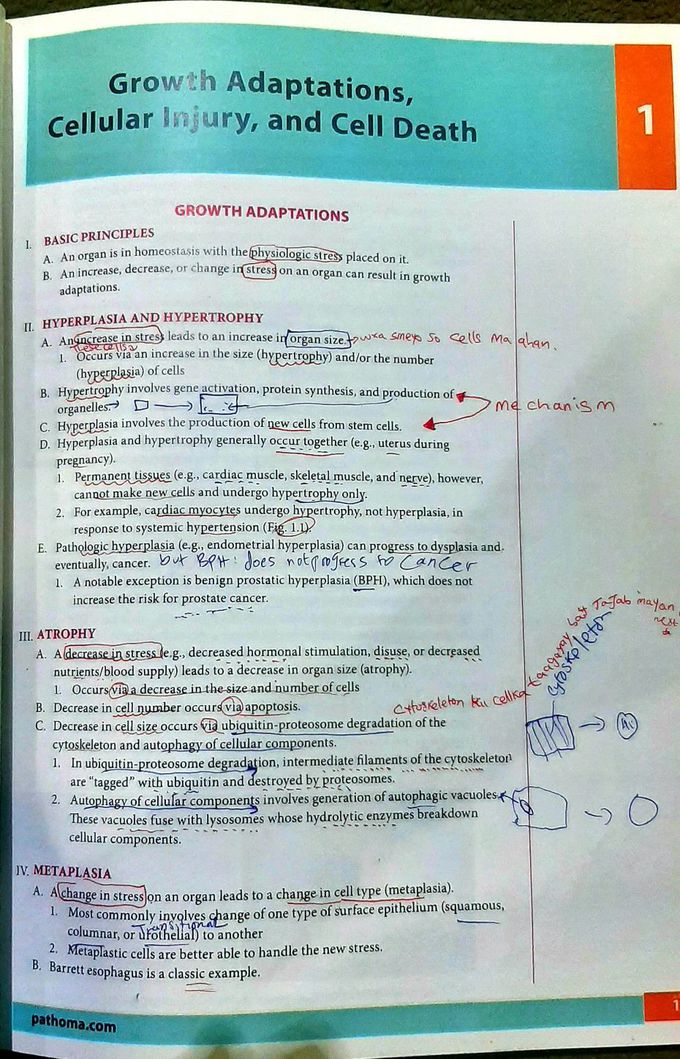 Growth Adaptations,
Cellular Injury, and Cell Death
1
GROWTH ADAPTATIONS
I. BASIC PRINCIPLES
A. An organ is in homeostasis with the physiologic stress placed on it.
B. An increase, decrease, or change in stress on an organ can result in growth
adaptations.
II. HYPERPLASIA AND HYPERTROPHY
A. An increase in stress leads to an increase in organ size.
so cells ma ahan.
1. Occurs via an increase in the size (hypertrophy) and/or the number
(hyperplasia) of cells
B. Hypertrophy involves gene activation, protein synthesis, and production of
organelles.
mechanism
C. Hyperplasia involves the production of new cells from stem cells.
D. Hyperplasia and hypertrophy generally occur together (e.g., uterus during
pregnancy).
1. Permanent tissues (e.g., cardiac muscle, skeletal muscle, and nerve), however,
cannot make new cells and undergo hypertrophy only.
2. For example, cardiac myocytes undergo hypertrophy, not hyperplasia, in
response to systemic hypertension (Fig. 1.1).
E. Pathologic hyperplasia (e.g., endometrial hyperplasia) can progress to dysplasia and,
eventually, cancer. but BPH: does not progress to cancer
1. A notable exception is benign prostatic hyperplasia (BPH), which does not
increase the risk for prostate cancer.
III. ATROPHY
A. A decrease in stress (e.g., decreased hormonal stimulation, disuse, or decreased
nutrients/blood supply) leads to a decrease in organ size (atrophy).
1. Occurs via a decrease in the size and number of cells
B. Decrease in cell number occurs via apoptosis.
cytoskeleton
cytoskeleton
C. Decrease in cell size occurs via ubiquitin-proteosome degradation of the
cytoskeleton and autophagy of cellular components.
1. In ubiquitin-proteosome degradation, intermediate filaments of the cytoskeleton
are "tagged" with ubiquitin and destroyed by proteosomes.
2. Autophagy of cellular components involves generation of autophagic vacuoles.
These vacuoles fuse with lysosomes whose hydrolytic enzymes breakdown
cellular components.
IV. METAPLASIA
A. A change in stress on an organ leads to a change in cell type (metaplasia).
1. Most commonly involves change of one type of surface epithelium (squamous,
Transitional
columnar, or urothelial) to another
2. Metaplastic cells are better able to handle the new stress.
B. Barrett esophagus is a classic example.
pathoma.com
1